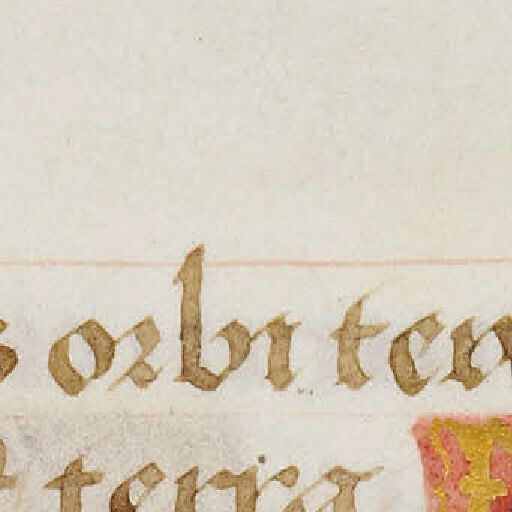 s orbi terr
t terra